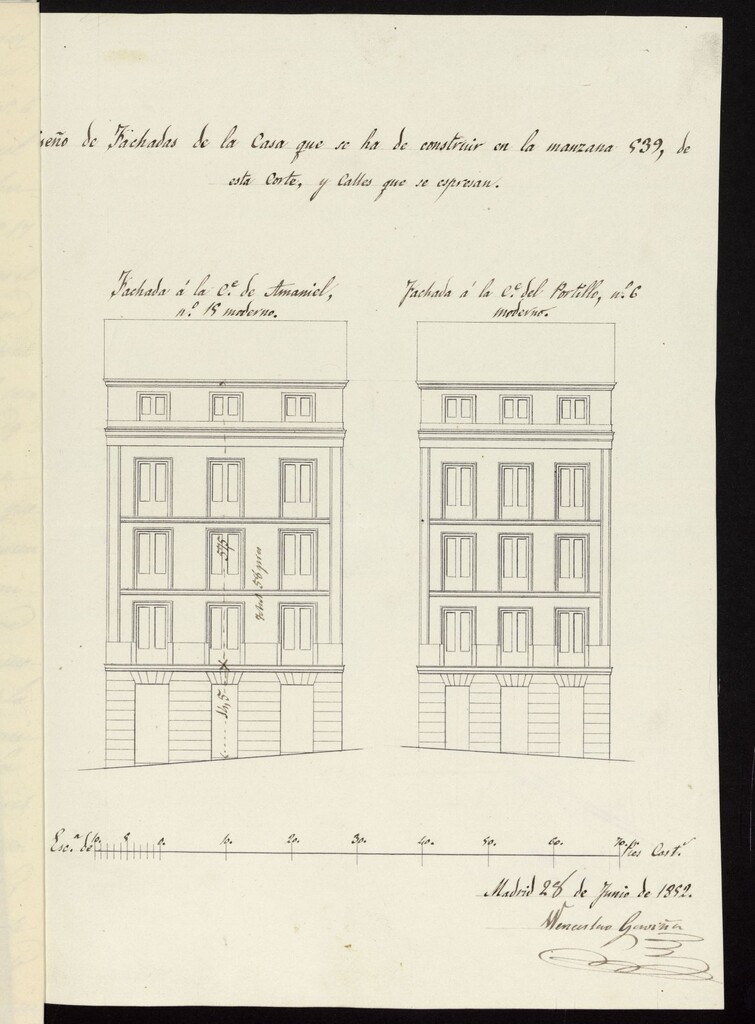 seño de Fachadas de la Casa que se ha de construir en la manzana 539, de
esta Corte, y Calles que se espresan.
Fachada á la C.e de Amaniel,
n.o 15 moderno.
Fachada á la C.e del Portillo, n.o 6
moderno.
575
Total 58 pies
14,5
Esc.a de
10. 5 0. 10. 20. 30. 40. 50. 60. 70. Pies Cast.s
Madrid 28 de Junio de 1852.
Wenceslao Gaviña